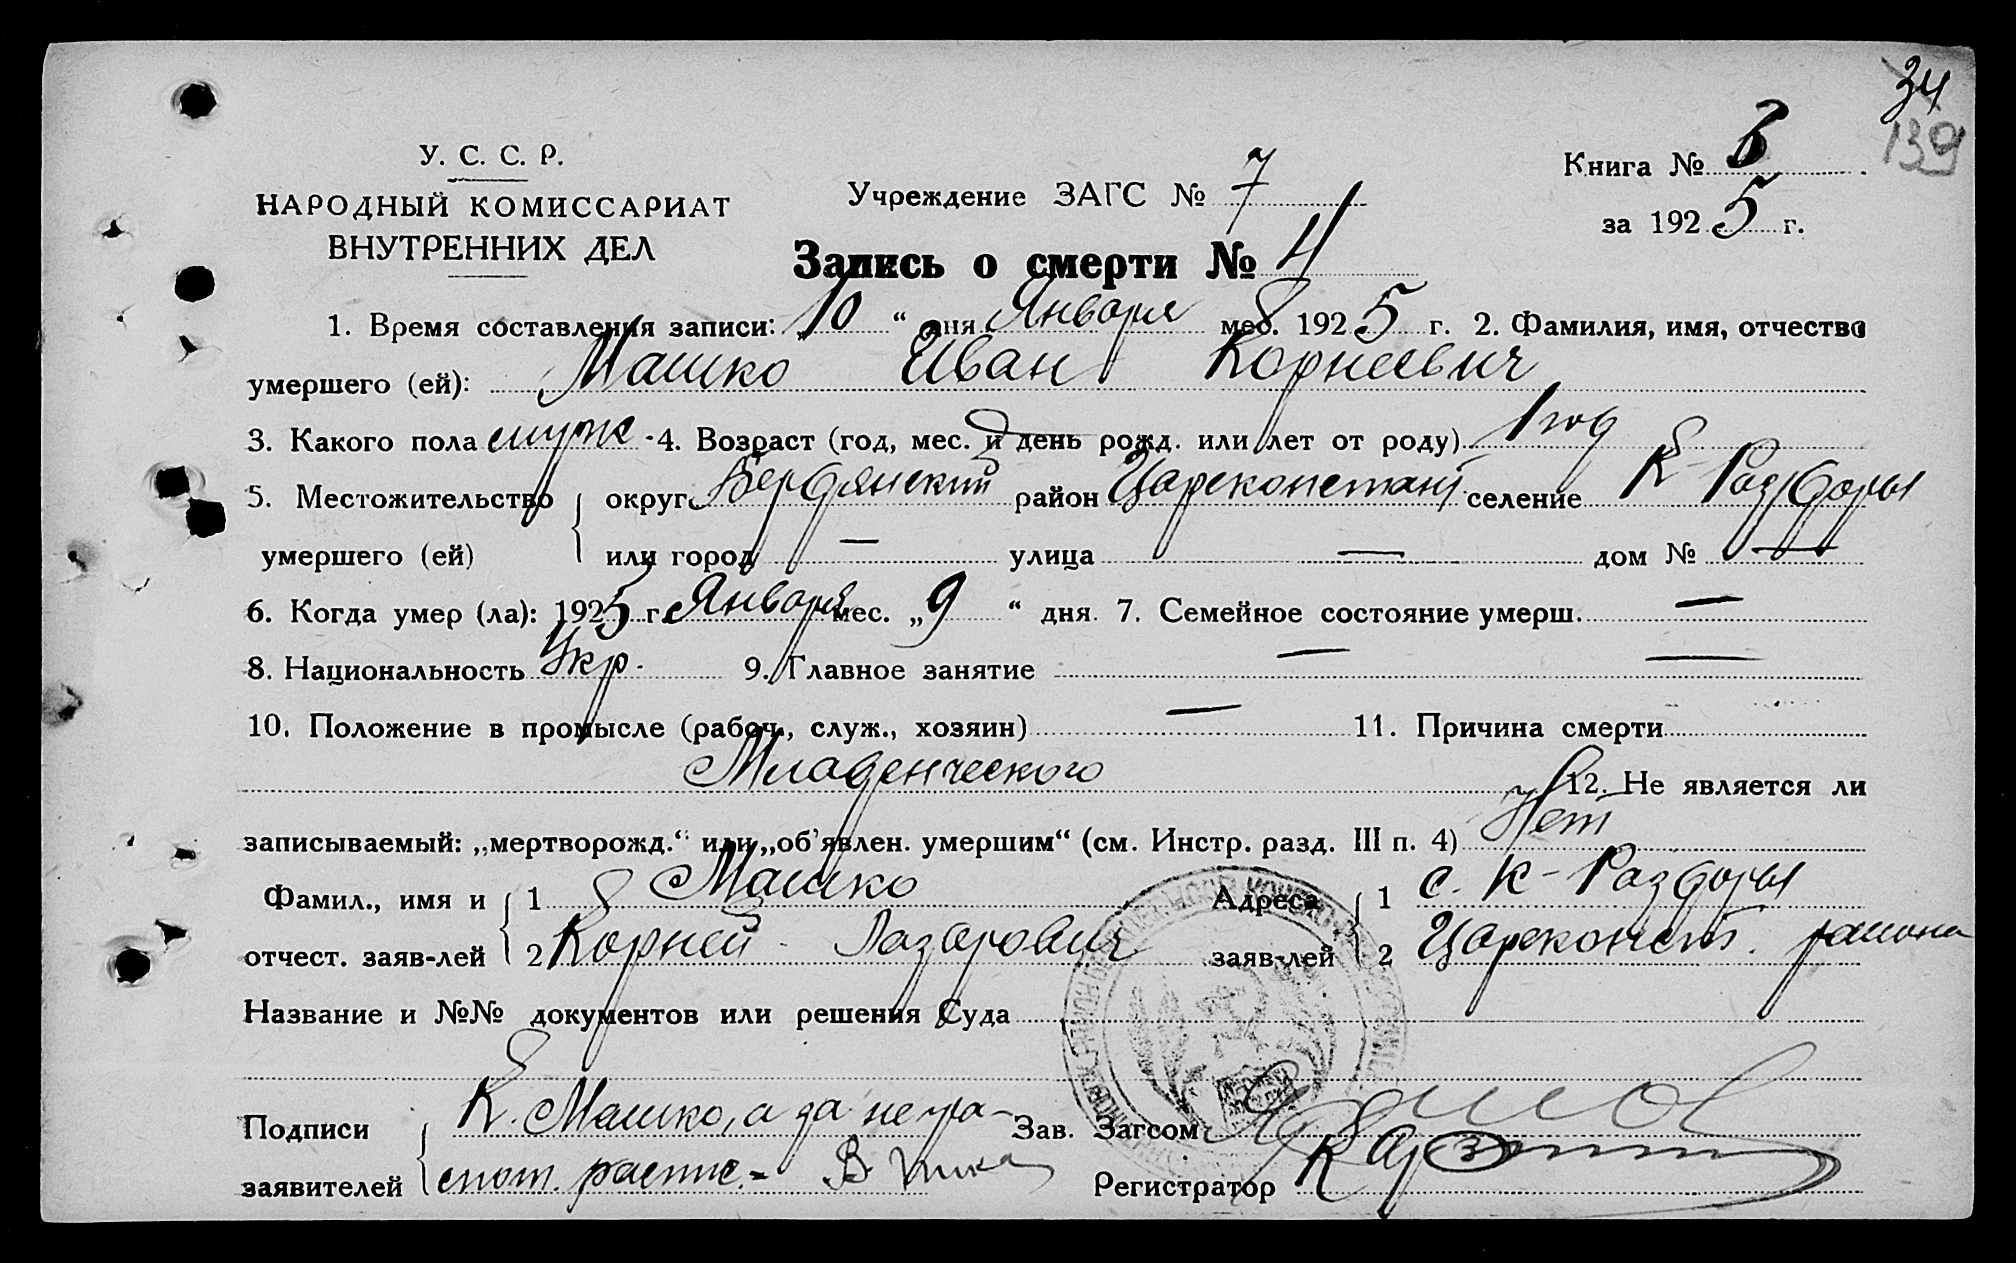 34
139
У. С. С. Р.
НАРОДНЫЙ КОМИССАРИАТ
ВНУТРЕННИХ ДЕЛ
Учреждение ЗАГС № 7
Книга №
за 1925 г.
Запись о смерти № 4
1. Время составления записи: „10“ дня Января мес. 1925 г. 2. Фамилия, имя, отчество
умершего (ей): Машко Иван Корнеевич
3. Какого пола муж. 4. Возраст (год, мес. и день рожд. или лет от роду) 1 год
5. Местожительство округ Бердянский район Цареконстант. селение К-Раздоры
умершего (ей) или город — улица — дом № —
6. Когда умер (ла): 1925 г. Января мес. „9“ дня. 7. Семейное состояние умерш. —
8. Национальность Укр. 9. Главное занятие — —
10. Положение в промысле (рабоч., служ., хозяин) — 11. Причина смерти
Младенческого 12. Не является ли
записываемый: „мертворожд.“ или „об'явлен. умершим“ (см. Инстр. разд. III п. 4) Нет
Фамил., имя и 1 Машко Адреса 1 с. К-Раздоры
отчест. заяв-лей 2 Корней Лазарович заяв-лей 2 Цареконст. района
Название и №№ документов или решения Суда
Подписи К. Машко, а за негра- Зав. Загсом
заявителей мот. распис.- В Регистратор